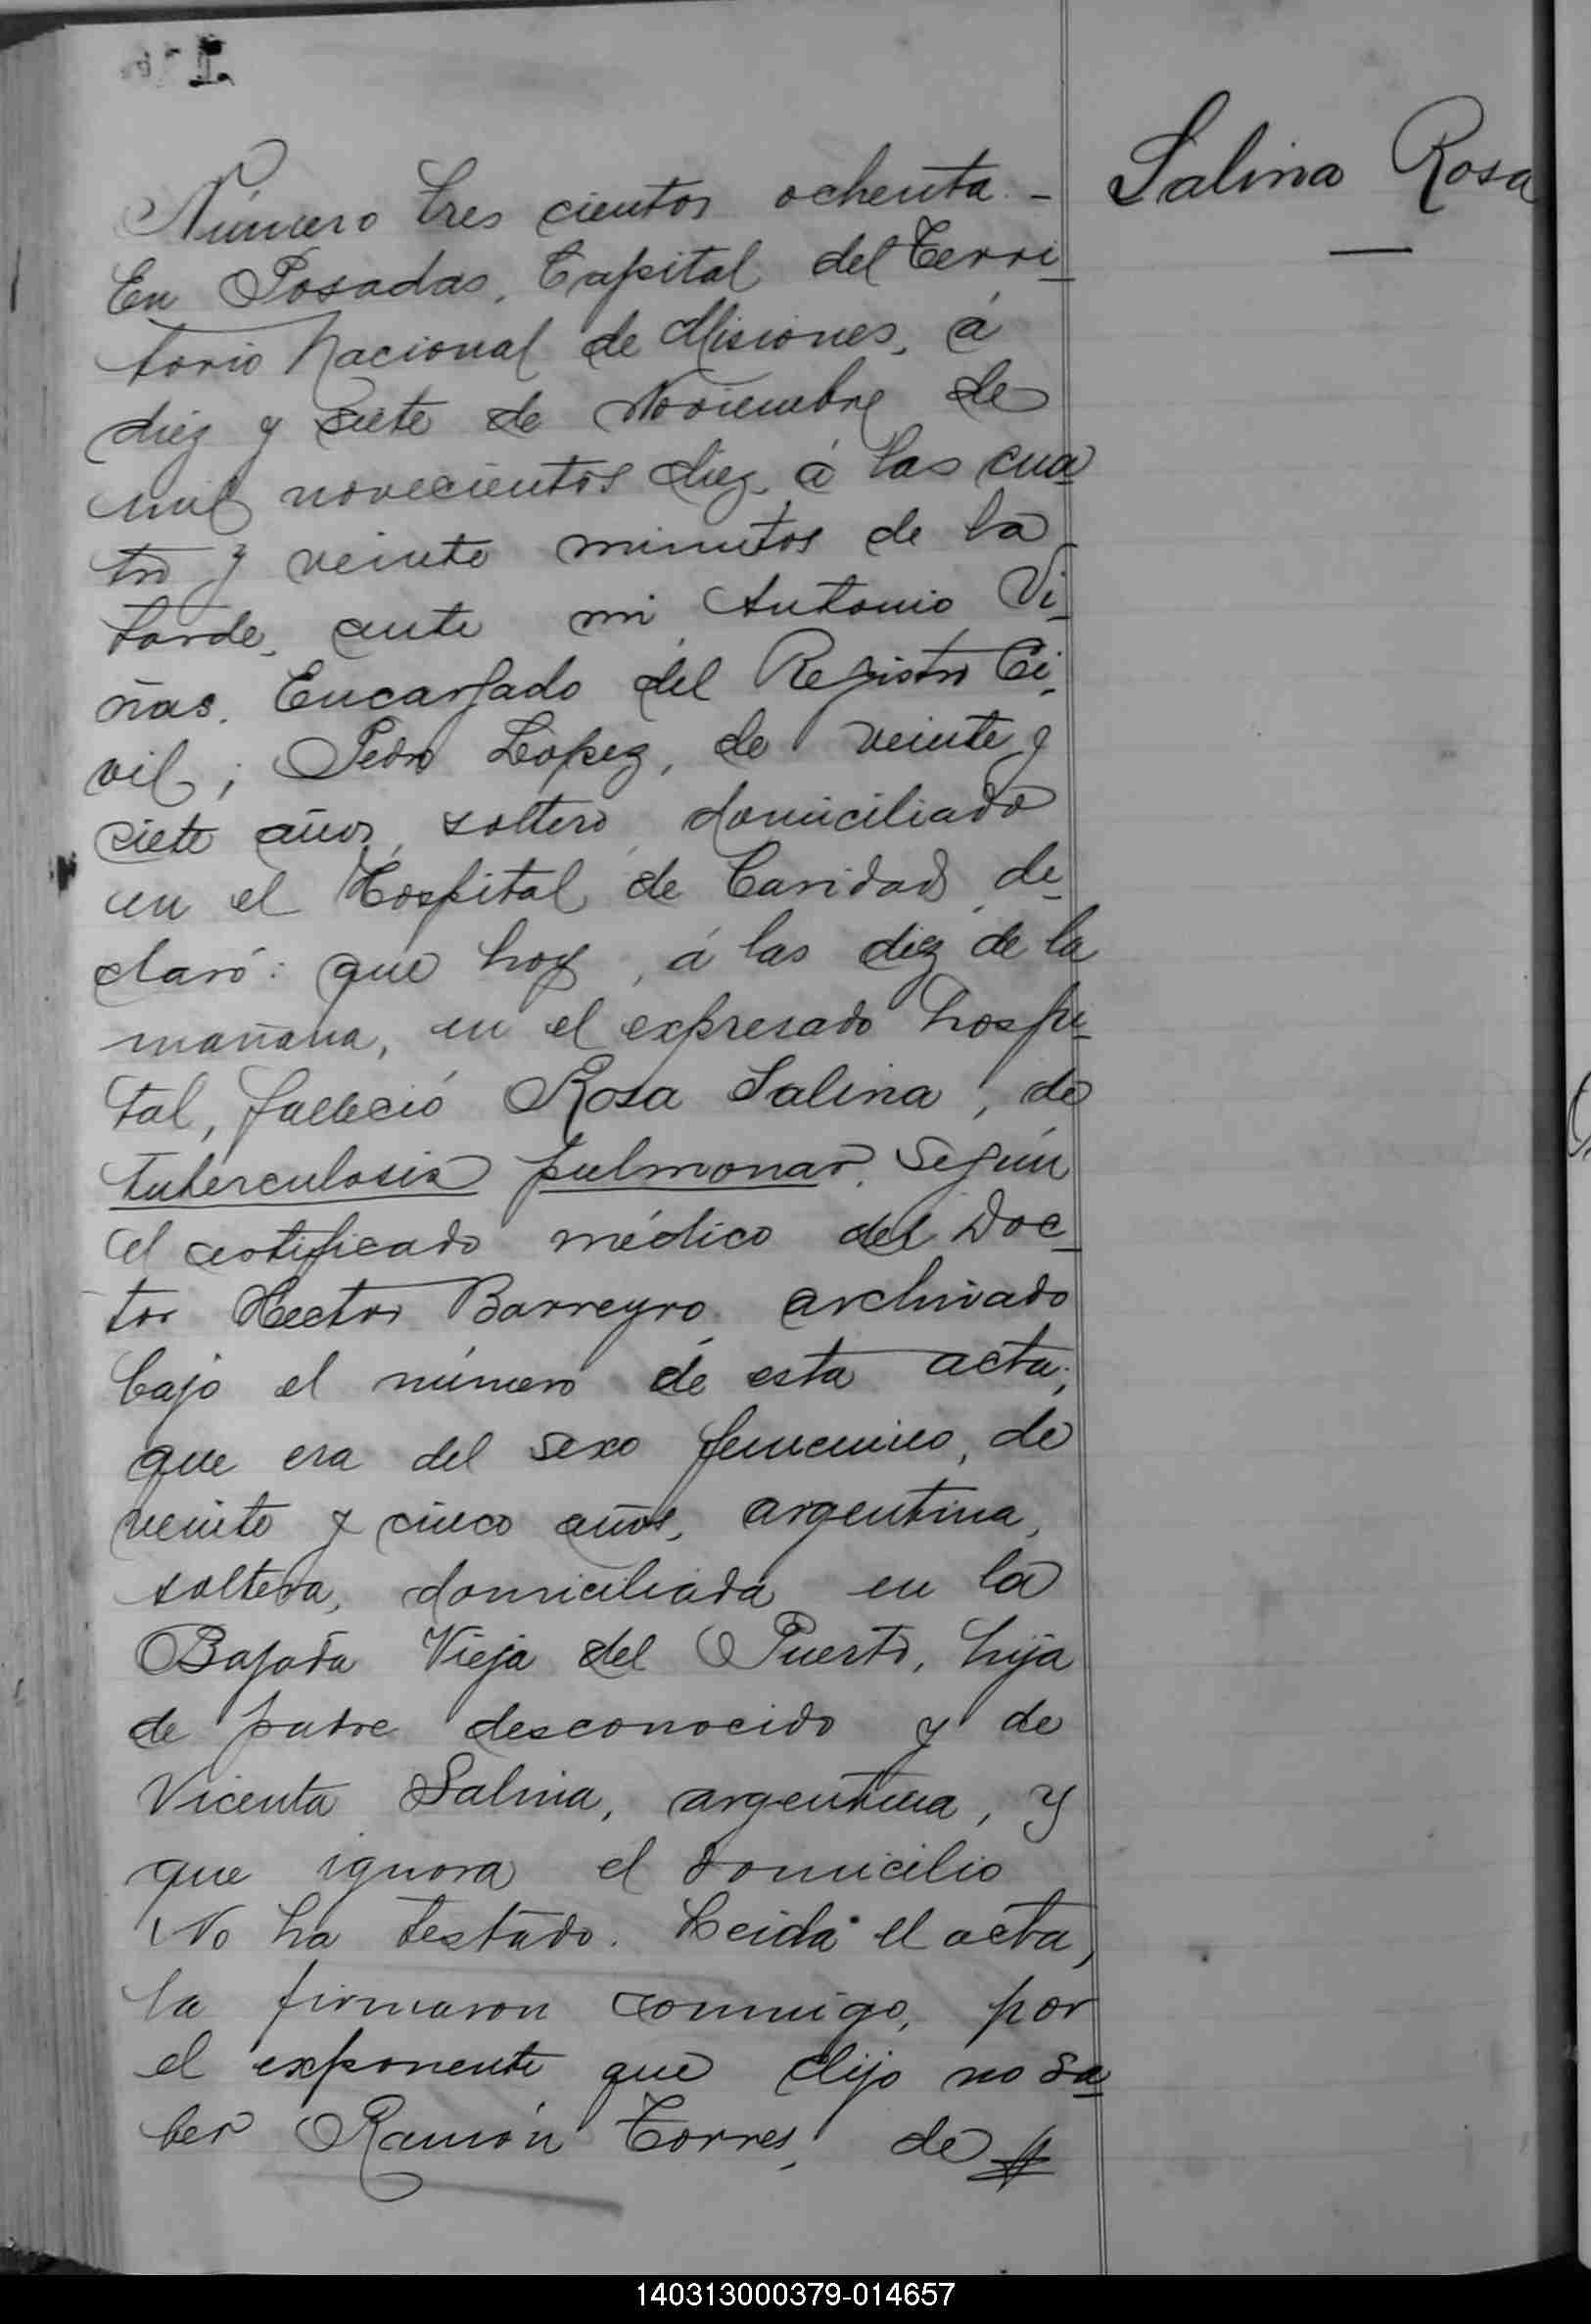 Salina Rosa
Número tres cientos ochenta. –
En Posadas, Capital del Terri-
torio Nacional de Misiones, á
diez y siete de Noviembre de
mil novecientos diez, á las cua-
tro y veinte minutos de la
tarde, ante mi, Antonio Vi-
ñas, Encargado del Registro Ci-
vil; Pedro Lopez, de veinte y
siete años, soltero, domiciliado
en el Hospital de Caridad, de-
claró: que hoy, á las diez de la
mañana, en el expresado hospi-
tal, falleció Rosa Salina, de
tuberculosis pulmonar, según
el certificado médico del Doc-
tor Hector Barreyro, archivado
bajo el número de esta acta;
que era del sexo femenino, de
veinte y cinco años, argentina,
soltera, domiciliada en la
Bajada Vieja del Puerto, hija
de padre desconocido y de
Vicenta Salina, argentina, y
que ignora el domicilio
No ha testado. Leida el acta,
la firmaron conmigo, por
el exponente que dijo no sa-
ber Ramón Torres, de
140313000379-014657